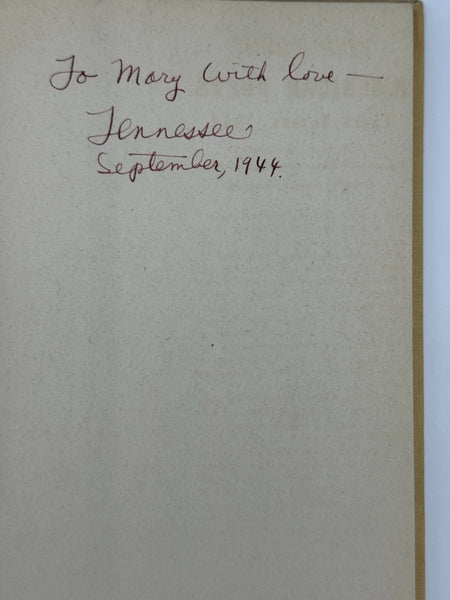 To Mary with love —
Tennessee
September, 1944.